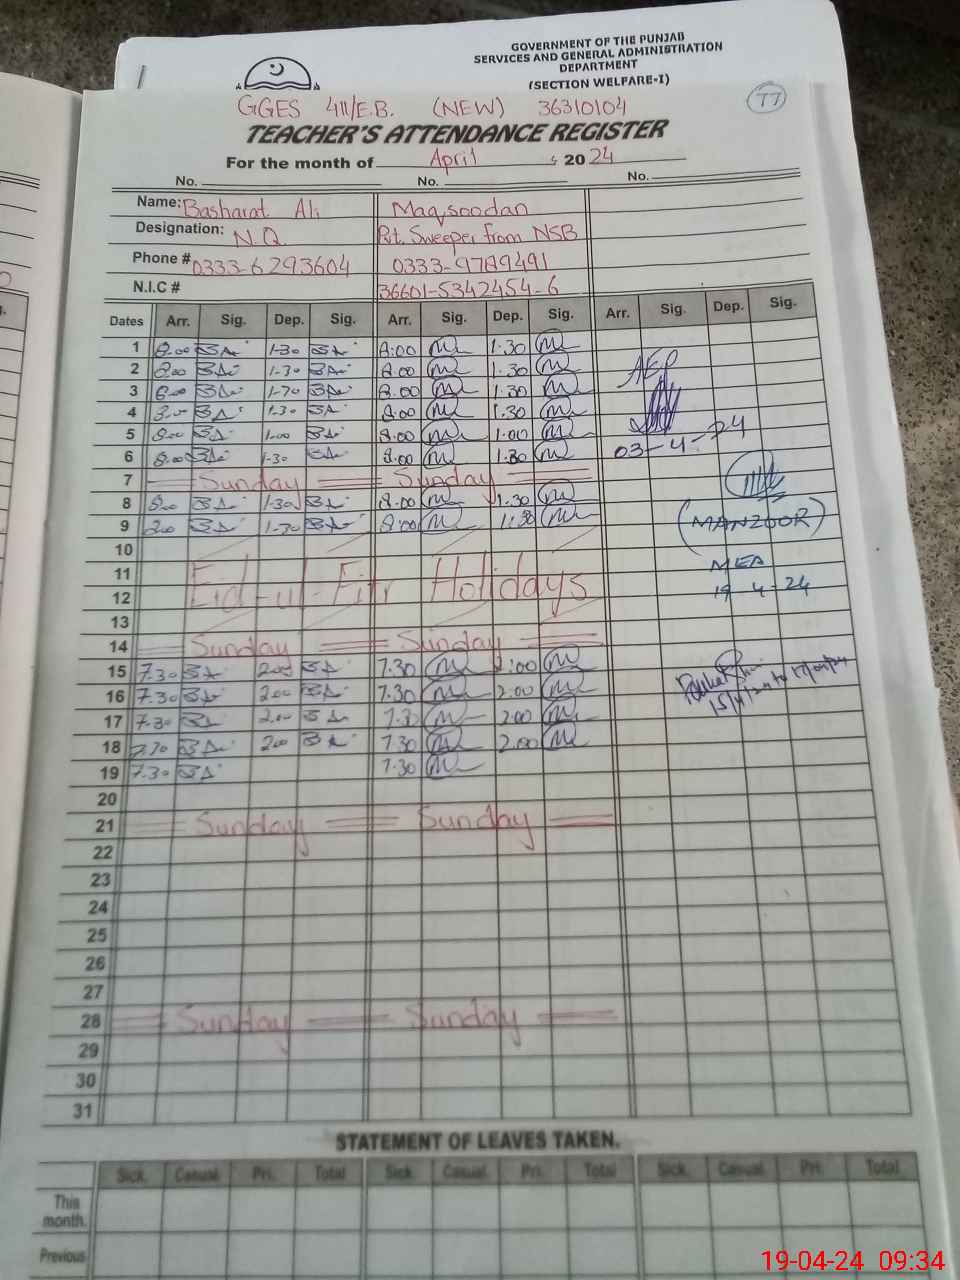 GOVERNMENT OF THE PUNJAB
SERVICES AND GENERAL ADMINISTRATION
DEPARTMENT
(SECTION WELFARE-I)
GGES 411/E.B. (NEW) 36310104
77
TEACHER'S ATTENDANCE REGISTER
For the month of April 2024
No. No. No.
Name: Basharat Ali Maqsoodan
Designation: N.Q Pvt. Sweeper from NSB
Phone # 0333-6293604 0333-9789491
N.I.C # 36601-5342454-6
Dates Arr. Sig. Dep. Sig. Arr. Sig. Dep. Sig. Arr. Sig. Dep. Sig.
1 8.00 1-30 8:00 1.30
2 8.00 1-30 8.00 1.30
AEO
3 8.00 1-30 8.00 1.30
4 8.00 1-30 8.00 1.30
5 8.00 1.00 8.00 1.00
03-4-24
6 8.00 1-30 8.00 1.30
7 Sunday Sunday
8 8.00 1-30 8.00 1.30
9 8.00 1-30 8:00 1:30
(MANZOOR)
10
11 Eid-ul-Fitr Holidays
MEA
12
19-4-24
13
14 Sunday Sunday
15 7.30 2.00 7.30 2:00
16 7.30 2.00 7.30 2:00
17 7.30 2.00 7.30 2.00
18 7.30 2.00 7.30 2.00
19 7.30 7.30
20
21 Sunday Sunday
22
23
24
25
26
27
28 Sunday Sunday
29
30
31
STATEMENT OF LEAVES TAKEN.
Sick. Casual. Pri. Total Sick. Casual. Pri. Total Sick. Casual. Pri. Total
This month.
Previous
19-04-24 09:34